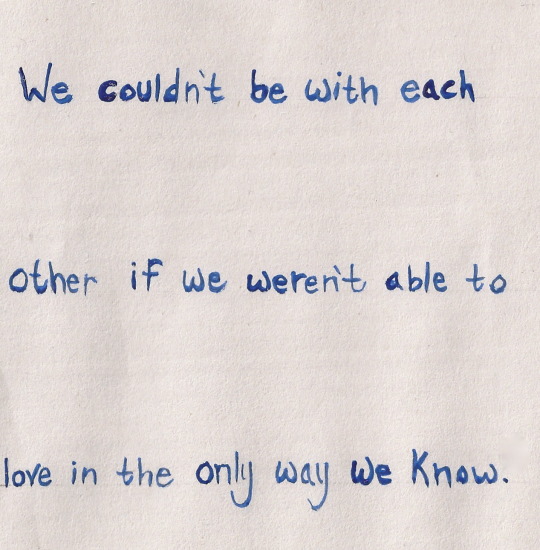 We couldn't be with each
other if we weren't able to
love in the only way we Know.